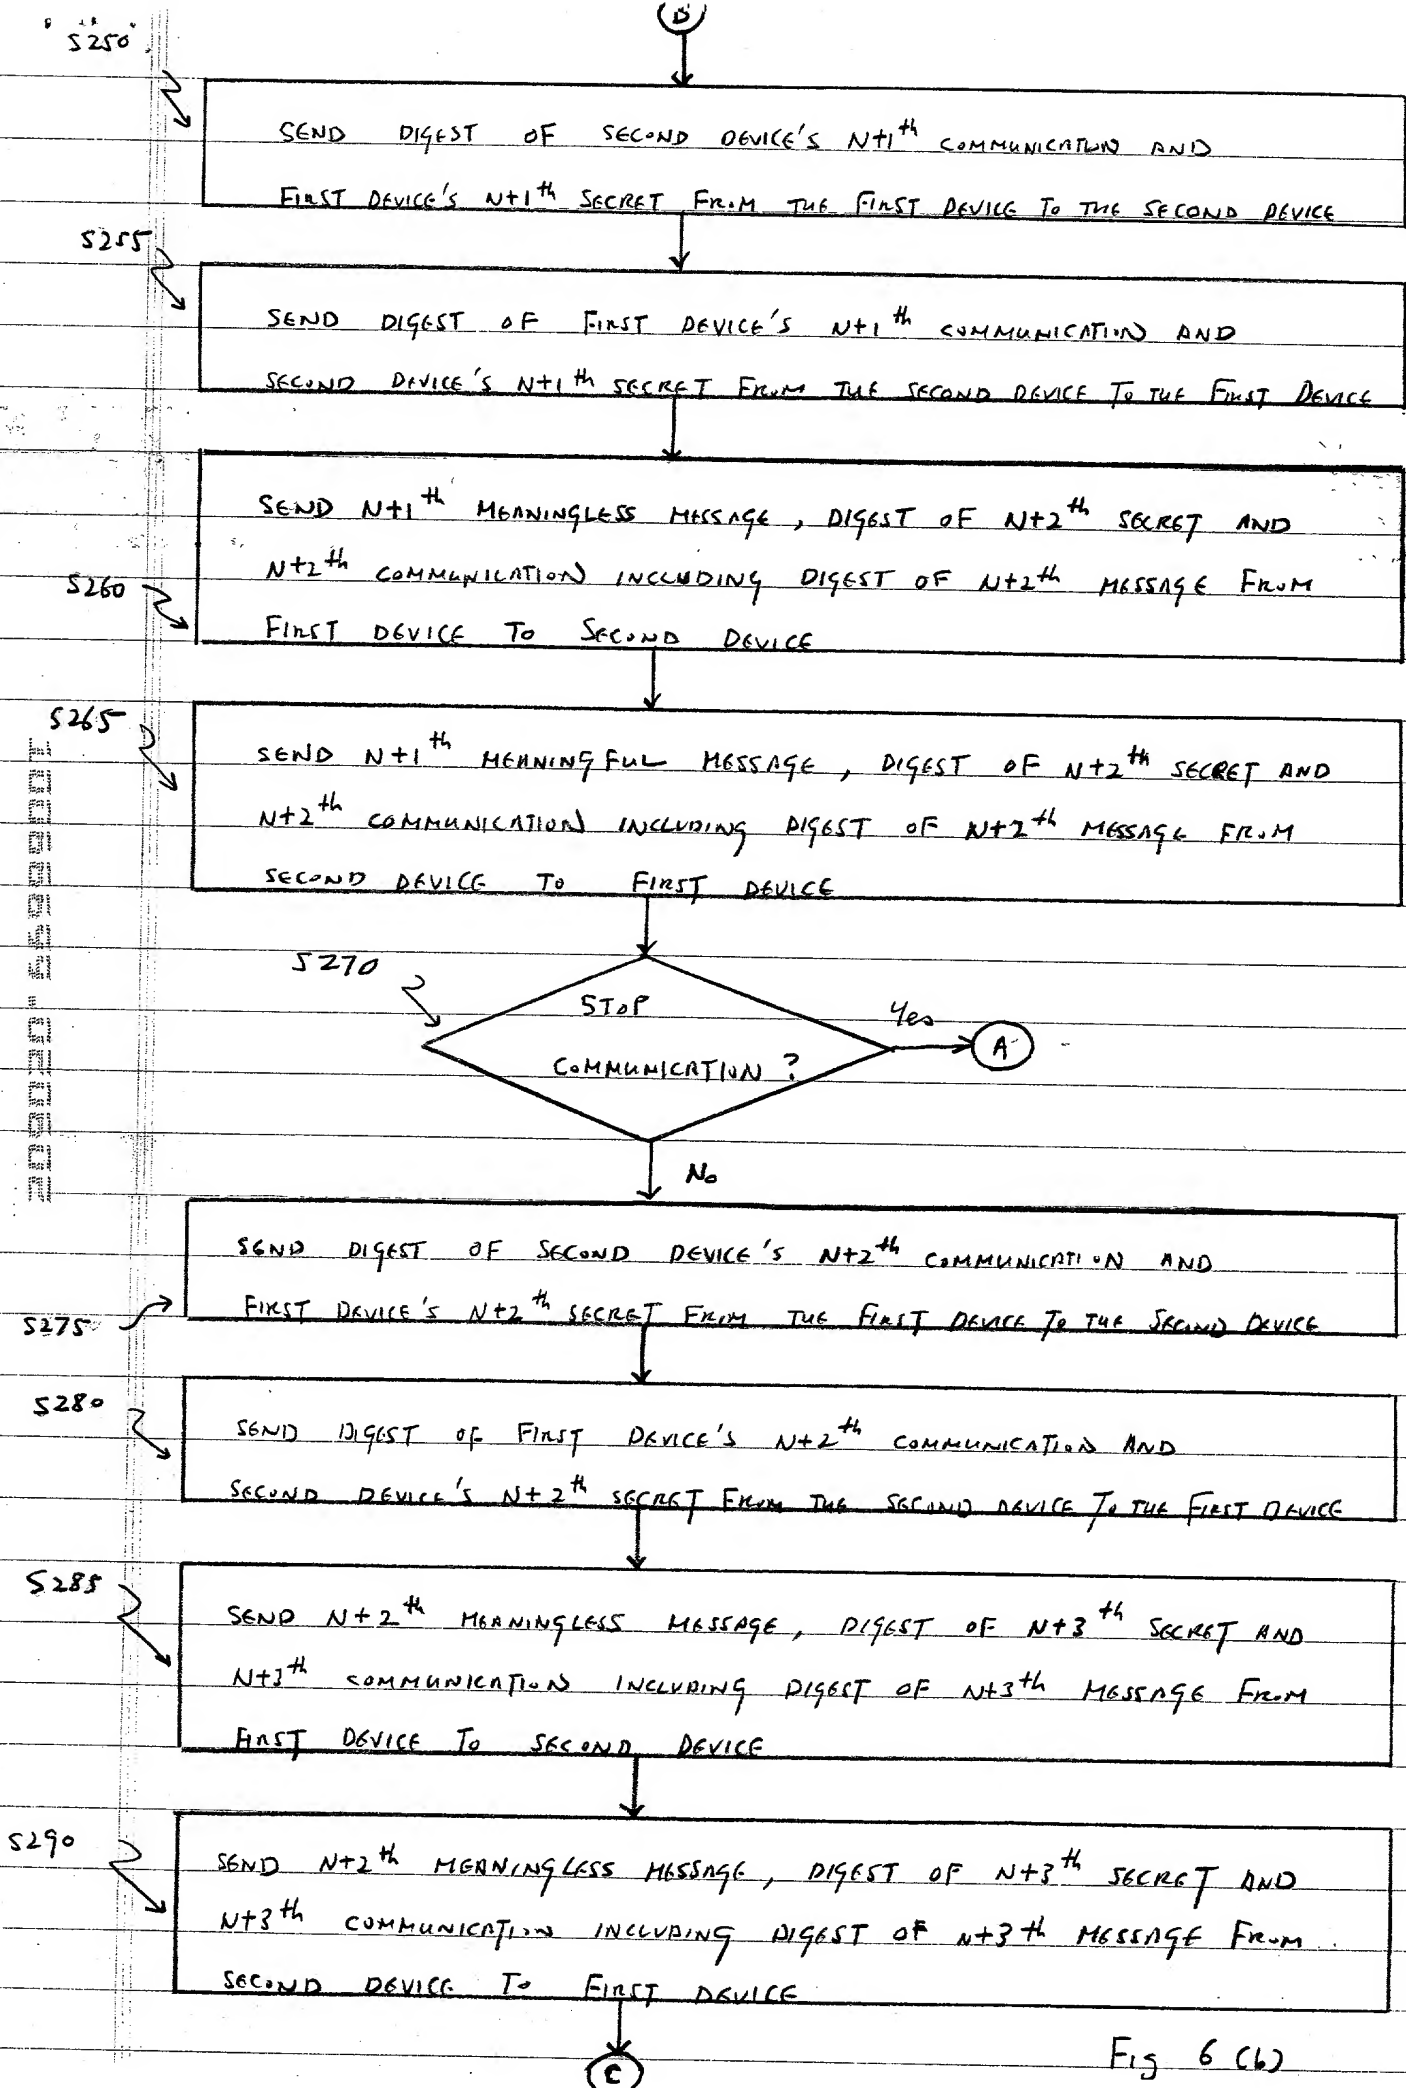 S250
SEND DIGEST OF SECOND DEVICE'S N+1th COMMUNICATION AND
FIRST DEVICE'S N+1th SECRET FROM THE FIRST DEVICE TO THE SECOND DEVICE
S255
SEND DIGEST OF FIRST DEVICE'S N+1th COMMUNICATION AND
SECOND DEVICE'S N+1th SECRET FROM THE SECOND DEVICE TO THE FIRST DEVICE
SEND N+1th MEANINGLESS MESSAGE, DIGEST OF N+2th SECRET AND
N+2th COMMUNICATION INCLUDING DIGEST OF N+2th MESSAGE FROM
S260
FIRST DEVICE TO SECOND DEVICE
S265
SEND N+1th MEANINGFUL MESSAGE, DIGEST OF N+2th SECRET AND
N+2th COMMUNICATION INCLUDING DIGEST OF N+2th MESSAGE FROM
SECOND DEVICE TO FIRST DEVICE
S270
STOP
COMMUNICATION?
Yes
A
No
SEND DIGEST OF SECOND DEVICE'S N+2th COMMUNICATION AND
FIRST DEVICE'S N+2th SECRET FROM THE FIRST DEVICE TO THE SECOND DEVICE
S275
S280
SEND DIGEST OF FIRST DEVICE'S N+2th COMMUNICATION AND
SECOND DEVICE'S N+2th SECRET FROM THE SECOND DEVICE TO THE FIRST DEVICE
S285
SEND N+2th MEANINGLESS MESSAGE, DIGEST OF N+3th SECRET AND
N+3th COMMUNICATION INCLUDING DIGEST OF N+3th MESSAGE FROM
FIRST DEVICE TO SECOND DEVICE
S290
SEND N+2th MEANINGLESS MESSAGE, DIGEST OF N+3th SECRET AND
N+3th COMMUNICATION INCLUDING DIGEST OF N+3th MESSAGE FROM
SECOND DEVICE TO FIRST DEVICE
C
Fig 6 (b)